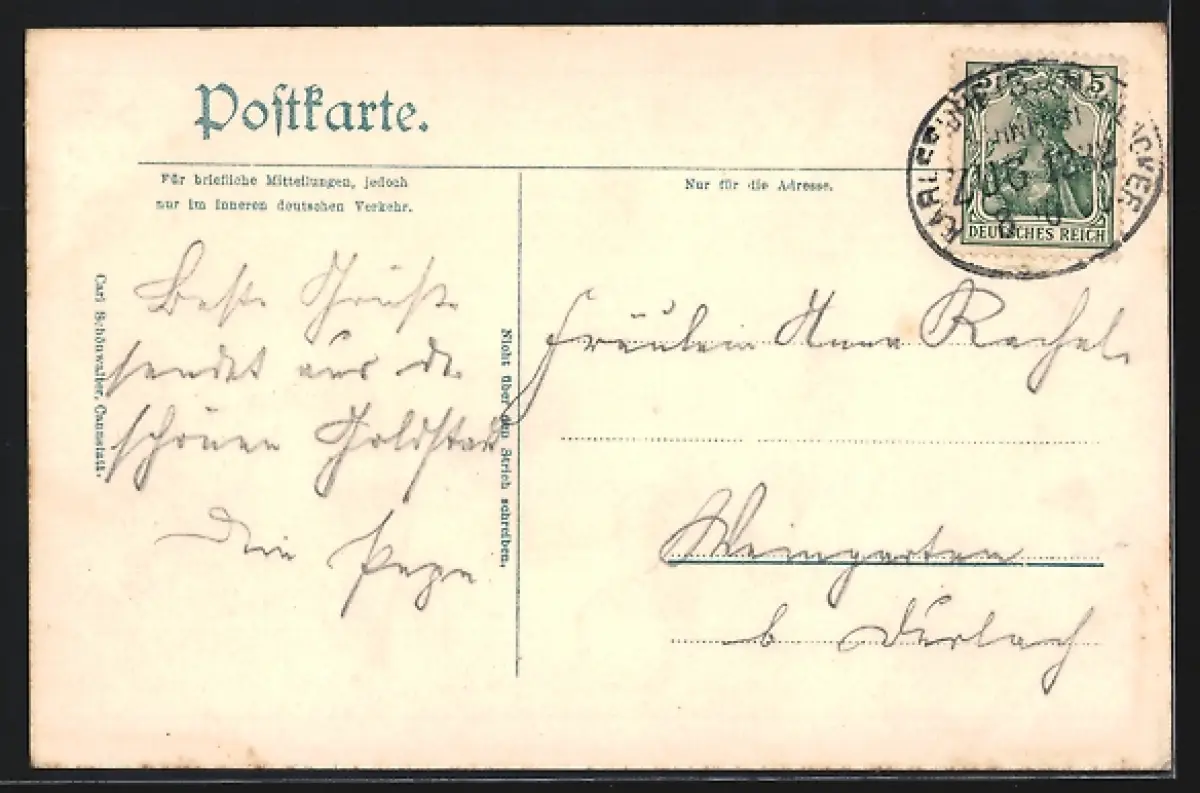 Postkarte.
Für briefliche Mitteilungen, jedoch
nur im inneren deutschen Verkehr.
Nur für die Adresse.
5
DEUTSCHES REICH
ZUG
Carl Schönwalter, Cannstatt.
Nicht über den Strich schreiben.
Beste Grüße
sendet aus der
schönen Goldstadt
Dein Papa
Fräulein Anna Rachel
Weingarten
b Durlach